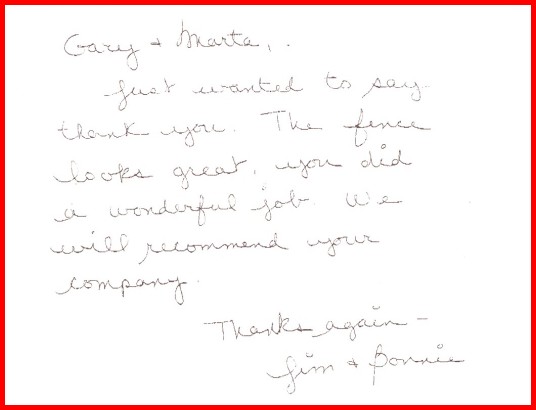 Gary + Marta,.
Just wanted to say
thank you. The fence
looks great, you did
a wonderful job. We
will recommend your
company.
Thanks again -
Jim + Bonnie